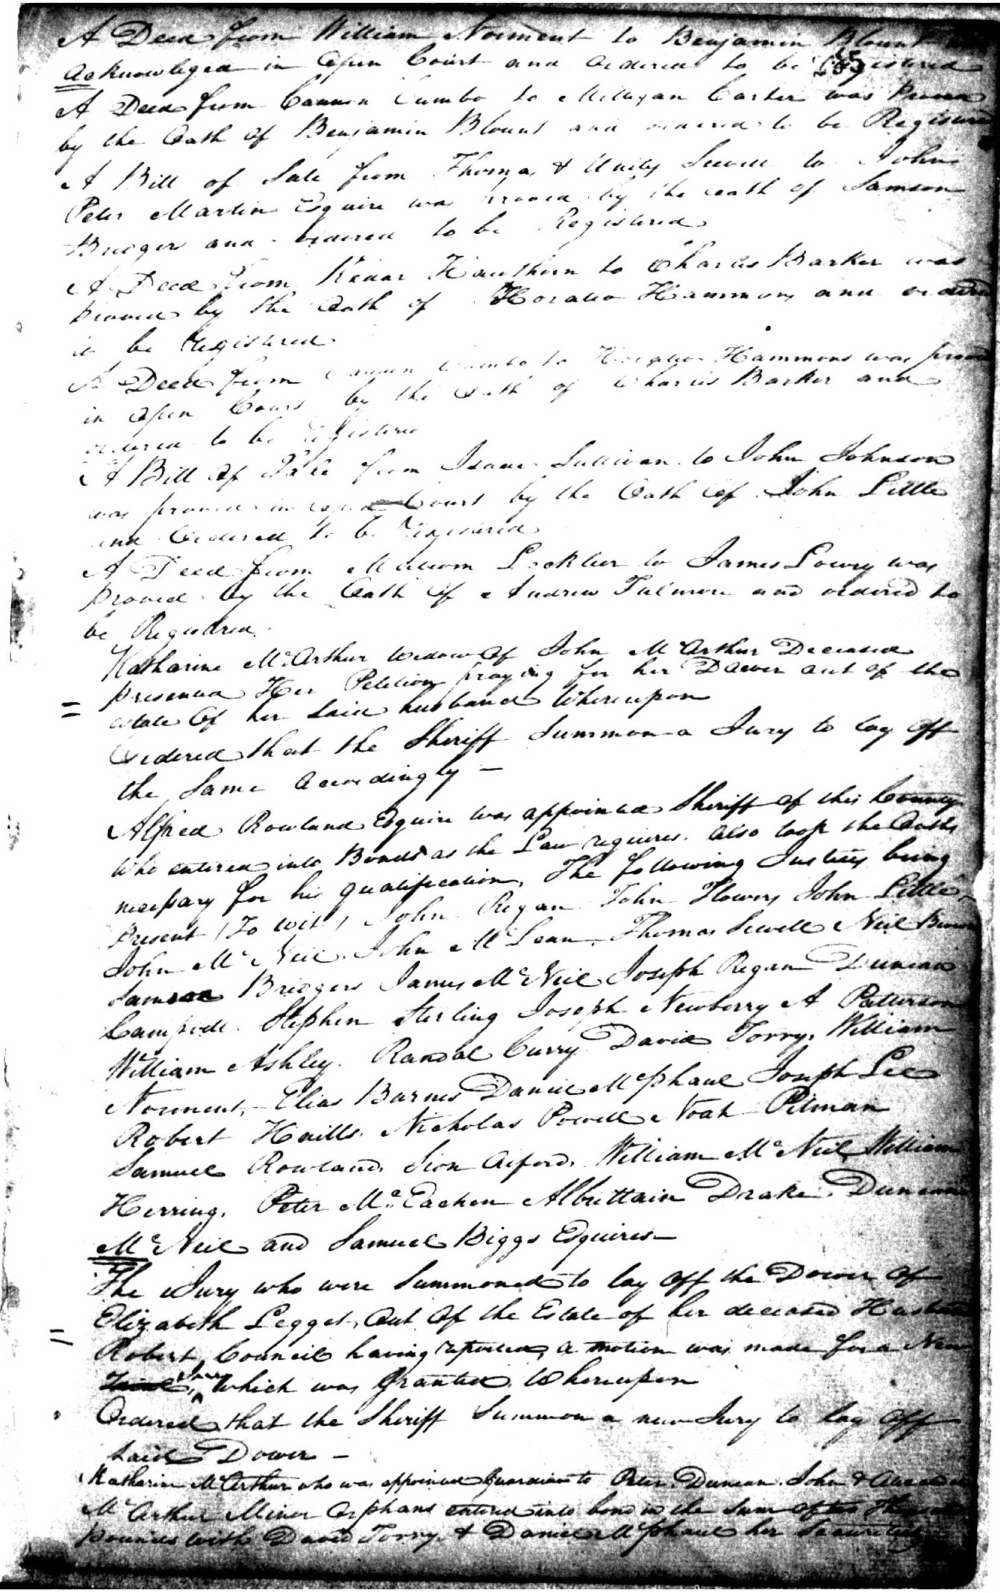 A Deed from William Norment to Benjamin Blount was
acknowleged in open Court and ordered to be Registered
A Deed from Cannon Cumbo to Milligan Carter was Proved
by the Oath of Benjamin Blount and ordered to be Registered
A Bill of Sale from Thomas & Unity Sewell to John
Peter Martin Esquire was proved by the oath of Samson
Bridgers and ordered to be Registered
A Deed from Hawthorn to Charles Barker was
proved by the Oath of Horatio Hammons and ordered
to be Registered
A Deed from Cannon Cumbo to Horatio Hammons was proved
in open Court by the Oath of Charles Barker and
ordered to be Registered
A Bill of Sale from Isaac Sullivan to John Johnson
was proved in open Court by the Oath of John Little
and Ordered to be Registered
A Deed from Malcom Locklier to James Lowry was
proved by the Oath of Andrew Fulmore and ordered to
be Registered
Katharine McArthur widow of John McArthur Deceased
presented Her Petition praying for her Dower out of the
estate of her said husband Whereupon
Ordered that the Sheriff Summon a Jury to lay off
the Same Accordingly —
Alfred Rowland Esquire was appointed Sheriff of this County
who entered into Bonds as the Law requires also took the Oaths
necessary for his qualification, The following Justices being
Present (To wit) John Regan John Flowers John Little
John McNeil John McLean Thomas Sewell Neil Brown
Samson Bridgers James McNeil Joseph Regan Duncan
Campbell Stephen Sterling Joseph Newberry A Patterson
William Ashley Randal Curry David Torry William
Norment, Elias Barnes Daniel McPhaul Joseph Lee
Robert Haills Nicholas Powell Noah Pitman
Samuel Rowland Sion Alford William McNeil William
Herring, Peter McEachen Albrittain Drake Duncan
McNeil and Samuel Biggs Esquires
The Jury who were Summoned to lay off the Dower of
Elizabeth Legget, Out of the Estate of her deceased Husband
Robert Council having reported, a motion was made for a New
Jury which was granted Whereupon
Ordered that the Sheriff Summon a new Jury to lay off
said Dower —
Katharine McArthur who was appointed Guardian to Peter Duncan John &
McArthur Minor Orphans entered into bond in the Sum of two Thousand
pounds with David Torry & Daniel McPhaul her Securities